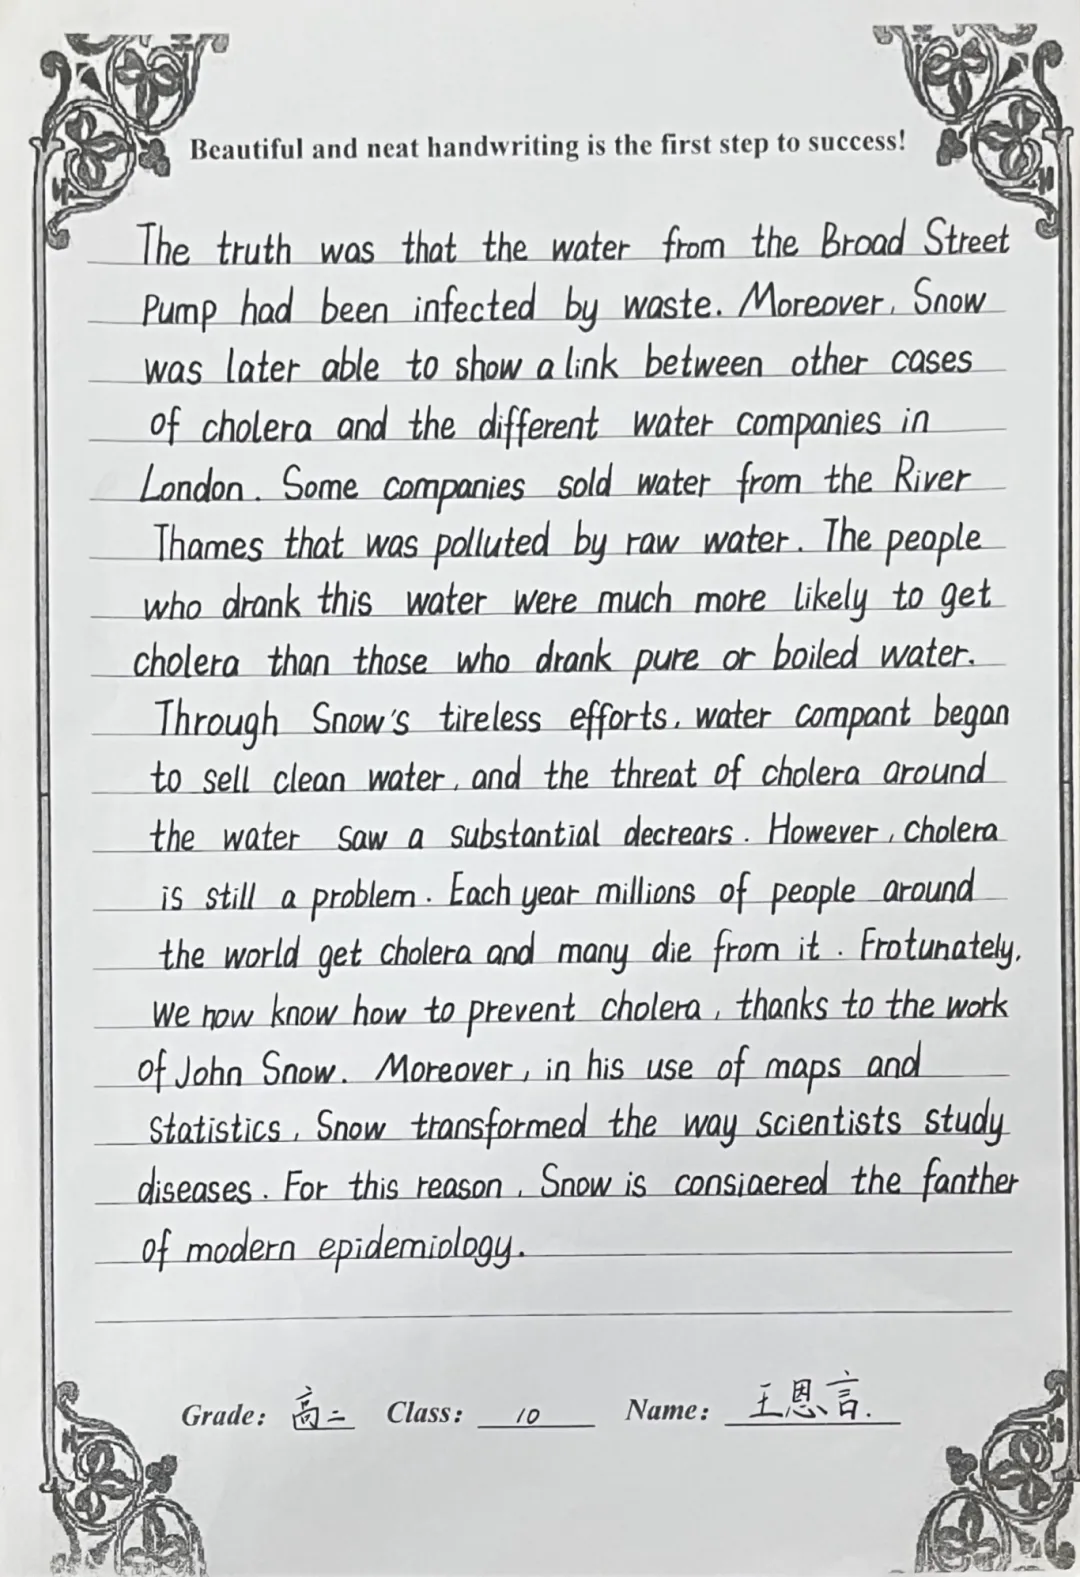 Beautiful and neat handwriting is the first step to success!
The truth was that the water from the Broad Street
Pump had been infected by waste. Moreover, Snow
was later able to show a link between other cases
of cholera and the different water companies in
London. Some companies sold water from the River
Thames that was polluted by raw water. The people
who drank this water were much more likely to get
cholera than those who drank pure or boiled water.
Through Snow's tireless efforts, water compant began
to sell clean water, and the threat of cholera around
the water saw a substantial decrears. However, cholera
is still a problem. Each year millions of people around
the world get cholera and many die from it. Frotunately,
We now know how to prevent cholera, thanks to the work
of John Snow. Moreover, in his use of maps and
statistics, Snow transformed the way scientists study
diseases. For this reason, Snow is consiaered the fanther
of modern epidemiology.
Grade: 高二 Class: 10 Name: 王恩言.